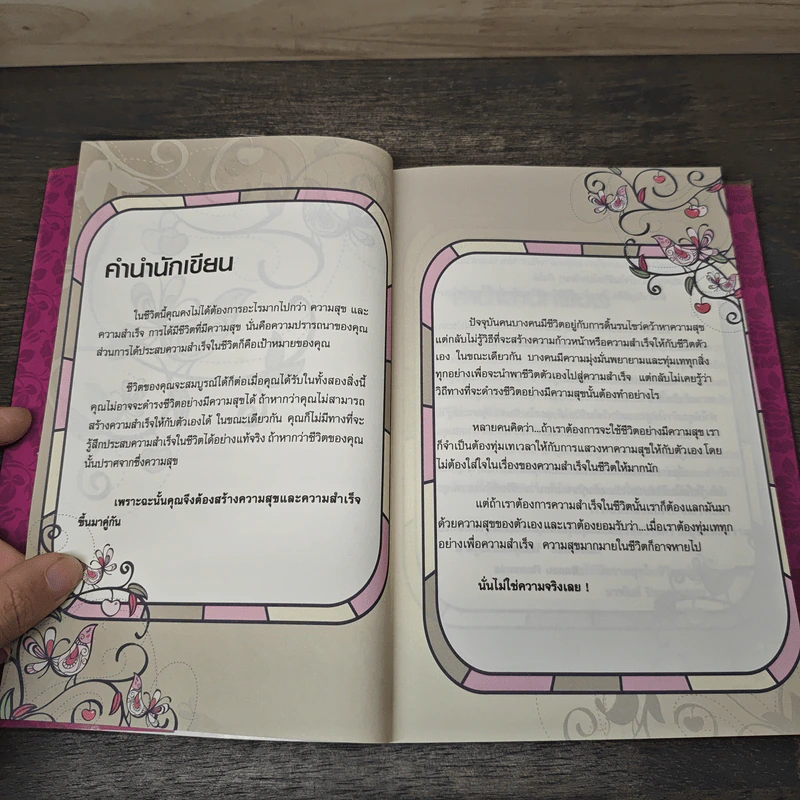 คำนำนักเขียน
ในชีวิตนี้คุณคงไม่ได้ต้องการอะไรมากไปกว่า ความสุข และ
ความสำเร็จ การได้มีชีวิตที่มีความสุข นั่นคือความปรารถนาของคุณ
ส่วนการได้ประสบความสำเร็จในชีวิตก็คือเป้าหมายของคุณ
ชีวิตของคุณจะสมบูรณ์ได้ก็ต่อเมื่อคุณได้รับในทั้งสองสิ่งนี้
คุณไม่อาจจะดำรงชีวิตอย่างมีความสุขได้ ถ้าหากว่าคุณไม่สามารถ
สร้างความสำเร็จให้กับตัวเองได้ ในขณะเดียวกัน คุณก็ไม่มีทางที่จะ
รู้สึกประสบความสำเร็จในชีวิตได้อย่างแท้จริง ถ้าหากว่าชีวิตของคุณ
นั้นปราศจากซึ่งความสุข
เพราะฉะนั้นคุณจึงต้องสร้างความสุขและความสำเร็จ
ขึ้นมาคู่กัน
ปัจจุบันคนบางคนมีชีวิตอยู่กับการดิ้นรนไขว่คว้าหาความสุข
แต่กลับไม่รู้วิธีที่จะสร้างความก้าวหน้าหรือความสำเร็จให้กับชีวิตตัว
เอง ในขณะเดียวกัน บางคนมีความมุ่งมั่นพยายามและทุ่มเททุกสิ่ง
ทุกอย่างเพื่อจะนำพาชีวิตตัวเองไปสู่ความสำเร็จ แต่กลับไม่เคยรู้ว่า
วิถีทางที่จะดำรงชีวิตอย่างมีความสุขนั้นต้องทำอย่างไร
หลายคนคิดว่า...ถ้าเราต้องการจะใช้ชีวิตอย่างมีความสุข เรา
ก็จำเป็นต้องทุ่มเทเวลาให้กับการแสวงหาความสุขให้กับตัวเอง โดย
ไม่ต้องใส่ใจในเรื่องของความสำเร็จในชีวิตให้มากนัก
แต่ถ้าเราต้องการความสำเร็จในชีวิตนั้นเราก็ต้องแลกมันมา
ด้วยความสุขของตัวเองและเราต้องยอมรับว่า...เมื่อเราต้องทุ่มเททุก
อย่างเพื่อความสำเร็จ ความสุขมากมายในชีวิตก็อาจหายไป
นั่นไม่ใช่ความจริงเลย !